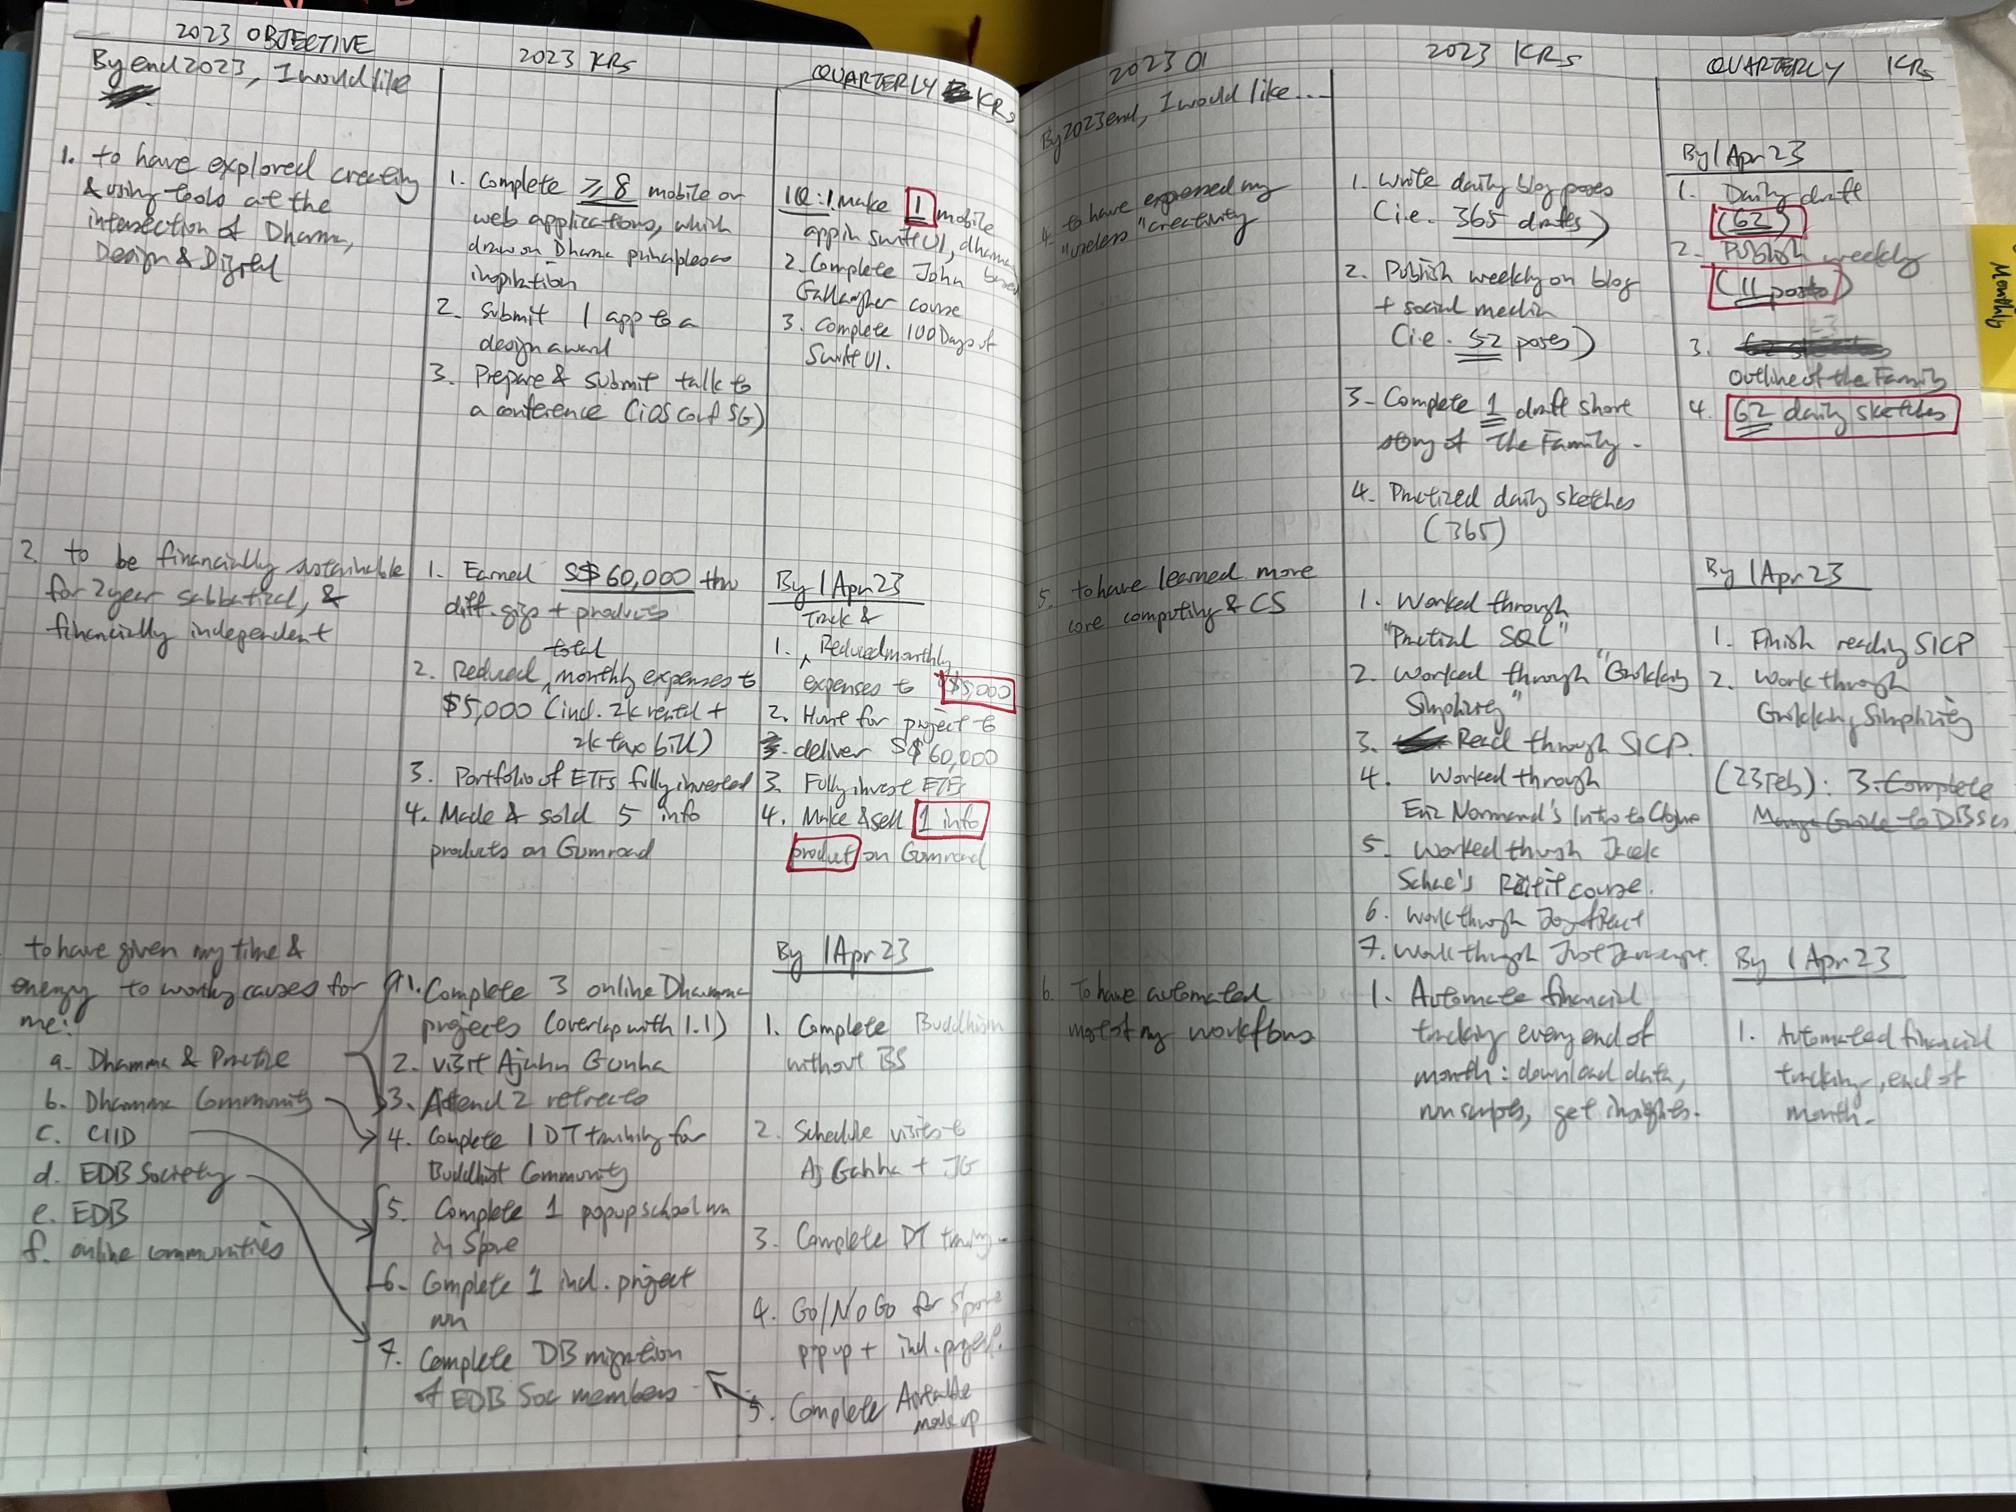 2023 OBJECTIVE
By end 2023, I would like
1. to have explored creating
& using tools at the
intersection of Dhamma,
Design & Digital
2. to be financially sustainable
for 2 year sabbatical, &
financially independent
to have given my time &
energy to worthy causes for
me:
a. Dhamma & Practice
b. Dhamma Community
c. CIID
d. EDB Society
e. EDB
f. online communities
2023 KRs
1. Complete ≥ 8 mobile or
web applications, which
draw on Dhamma principles as
inspiration
2. Submit 1 app to a
design award
3. Prepare & submit talk to
a conference (iOS Conf SG)
1. Earned S$ 60,000 thru
diff. gigs + products
total
2. Reduced monthly expenses to
$5,000 (incl. 2k rental +
2k tax bill)
3. Portfolio of ETFs fully invested
4. Made & sold 5 info
products on Gumroad
1. Complete 3 online Dhamma
projects (overlap with 1.1)
2. visit Ajahn Ganha
3. Attend 2 retreats
4. Complete 1 DT training for
Buddhist Community
5. Complete 1 popup school run
in Spore
6. Complete 1 ind. project
run
7. Complete DB migration
of EDB Soc members
QUARTERLY KRs
1Q: 1. Make 1 mobile
app in SwiftUI, dhamma
based
2. Complete John
Gallagher course
3. Complete 100 Days of
SwiftUI.
By 1 Apr 23
Track &
1. Reduced monthly
expenses to $5,000
2. Hunt for project to
deliver S$60,000
3. Fully invest ETFs
4. Make & sell 1 info
product on Gumroad
By 1 Apr 23
1. Complete Buddhism
without BS
2. Schedule visits to
Aj Ganha + JG
3. Complete DT training
4. Go/No Go for Spore
popup + ind. project.
5. Complete Airtable
mock up
2023 O1
By 2023 end, I would like...
4. to have expressed my
"useless" creativity
5. to have learned more
core computing & CS
6. To have automated
most of my workflows
2023 KRs
1. Write daily blog posts
(i.e. 365 drafts)
2. Publish weekly on blog
+ social media
(i.e. 52 posts)
3. Complete 1 draft short
story of The Family.
4. Practized daily sketches
(365)
1. Worked through
"Practical SQL"
2. Worked through "Grokking
Simplicity"
3. Read through SICP.
4. Worked through
Eric Normand's Intro to Clojure
5. Worked through Jacek
Schae's course.
6. Work through Joy of React
7. Work through Just Javascript.
1. Automate financial
tracking every end of
month: download data,
run scripts, get insights.
QUARTERLY KRs
By 1 Apr 23
1. Daily draft
(62)
2. Publish weekly
(11 posts)
3. 62 sketches
Outline of the Family
4. 62 daily sketches
By 1 Apr 23
1. Finish reading SICP
2. Work through
Grokking Simplicity
(23 Feb): 3. Complete
Manga Guide to DBses
By 1 Apr 23
1. Automated financial
tracking, end of
month.
Monthly